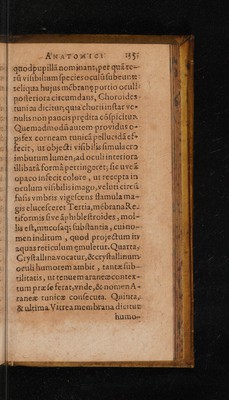 ANATOMICI 135
quodpupillã nominant, per quã re-
rũ visibiliũ species oculũ subeunt:
reliqua hujus mẽbranę portio oculi
posteriora circumdans, Choroides
tunica dicitur, quia chorii instar ve-
nulis non paucis prędita cõspicitur.
Quemadmodũ autem providus o-
pifex corneam tunicã pellucidã ef-
fecit, ut objecti visibilis simulacra
imbutum lumen, ad oculi interiora
illibatã formã pertingeret: sic uveã
opaco infecit colore, ut recepta in
oculum visibilis imago, veluti circũ
fusis vmbris vigescens flammula ma-
gis elucesceret Tertia, mẽbrana Re-
tiformis sive ãphiblestroides, mol-
lis est, mucosaq; substantia, cui no-
men inditum, quod projectum in
aquas reticulum ęmuletur. Quarta,
Crystallina vocatur, & crystallinum
oculi humorem ambit, tantæ sub-
tilitatis, ut tenuem araneæ contex-
tum præ se ferat, vnde, & nomen A-
raneæ tunicæ consecuta. Quinta,
& ultima Vitrea membrana dicitur
humo-